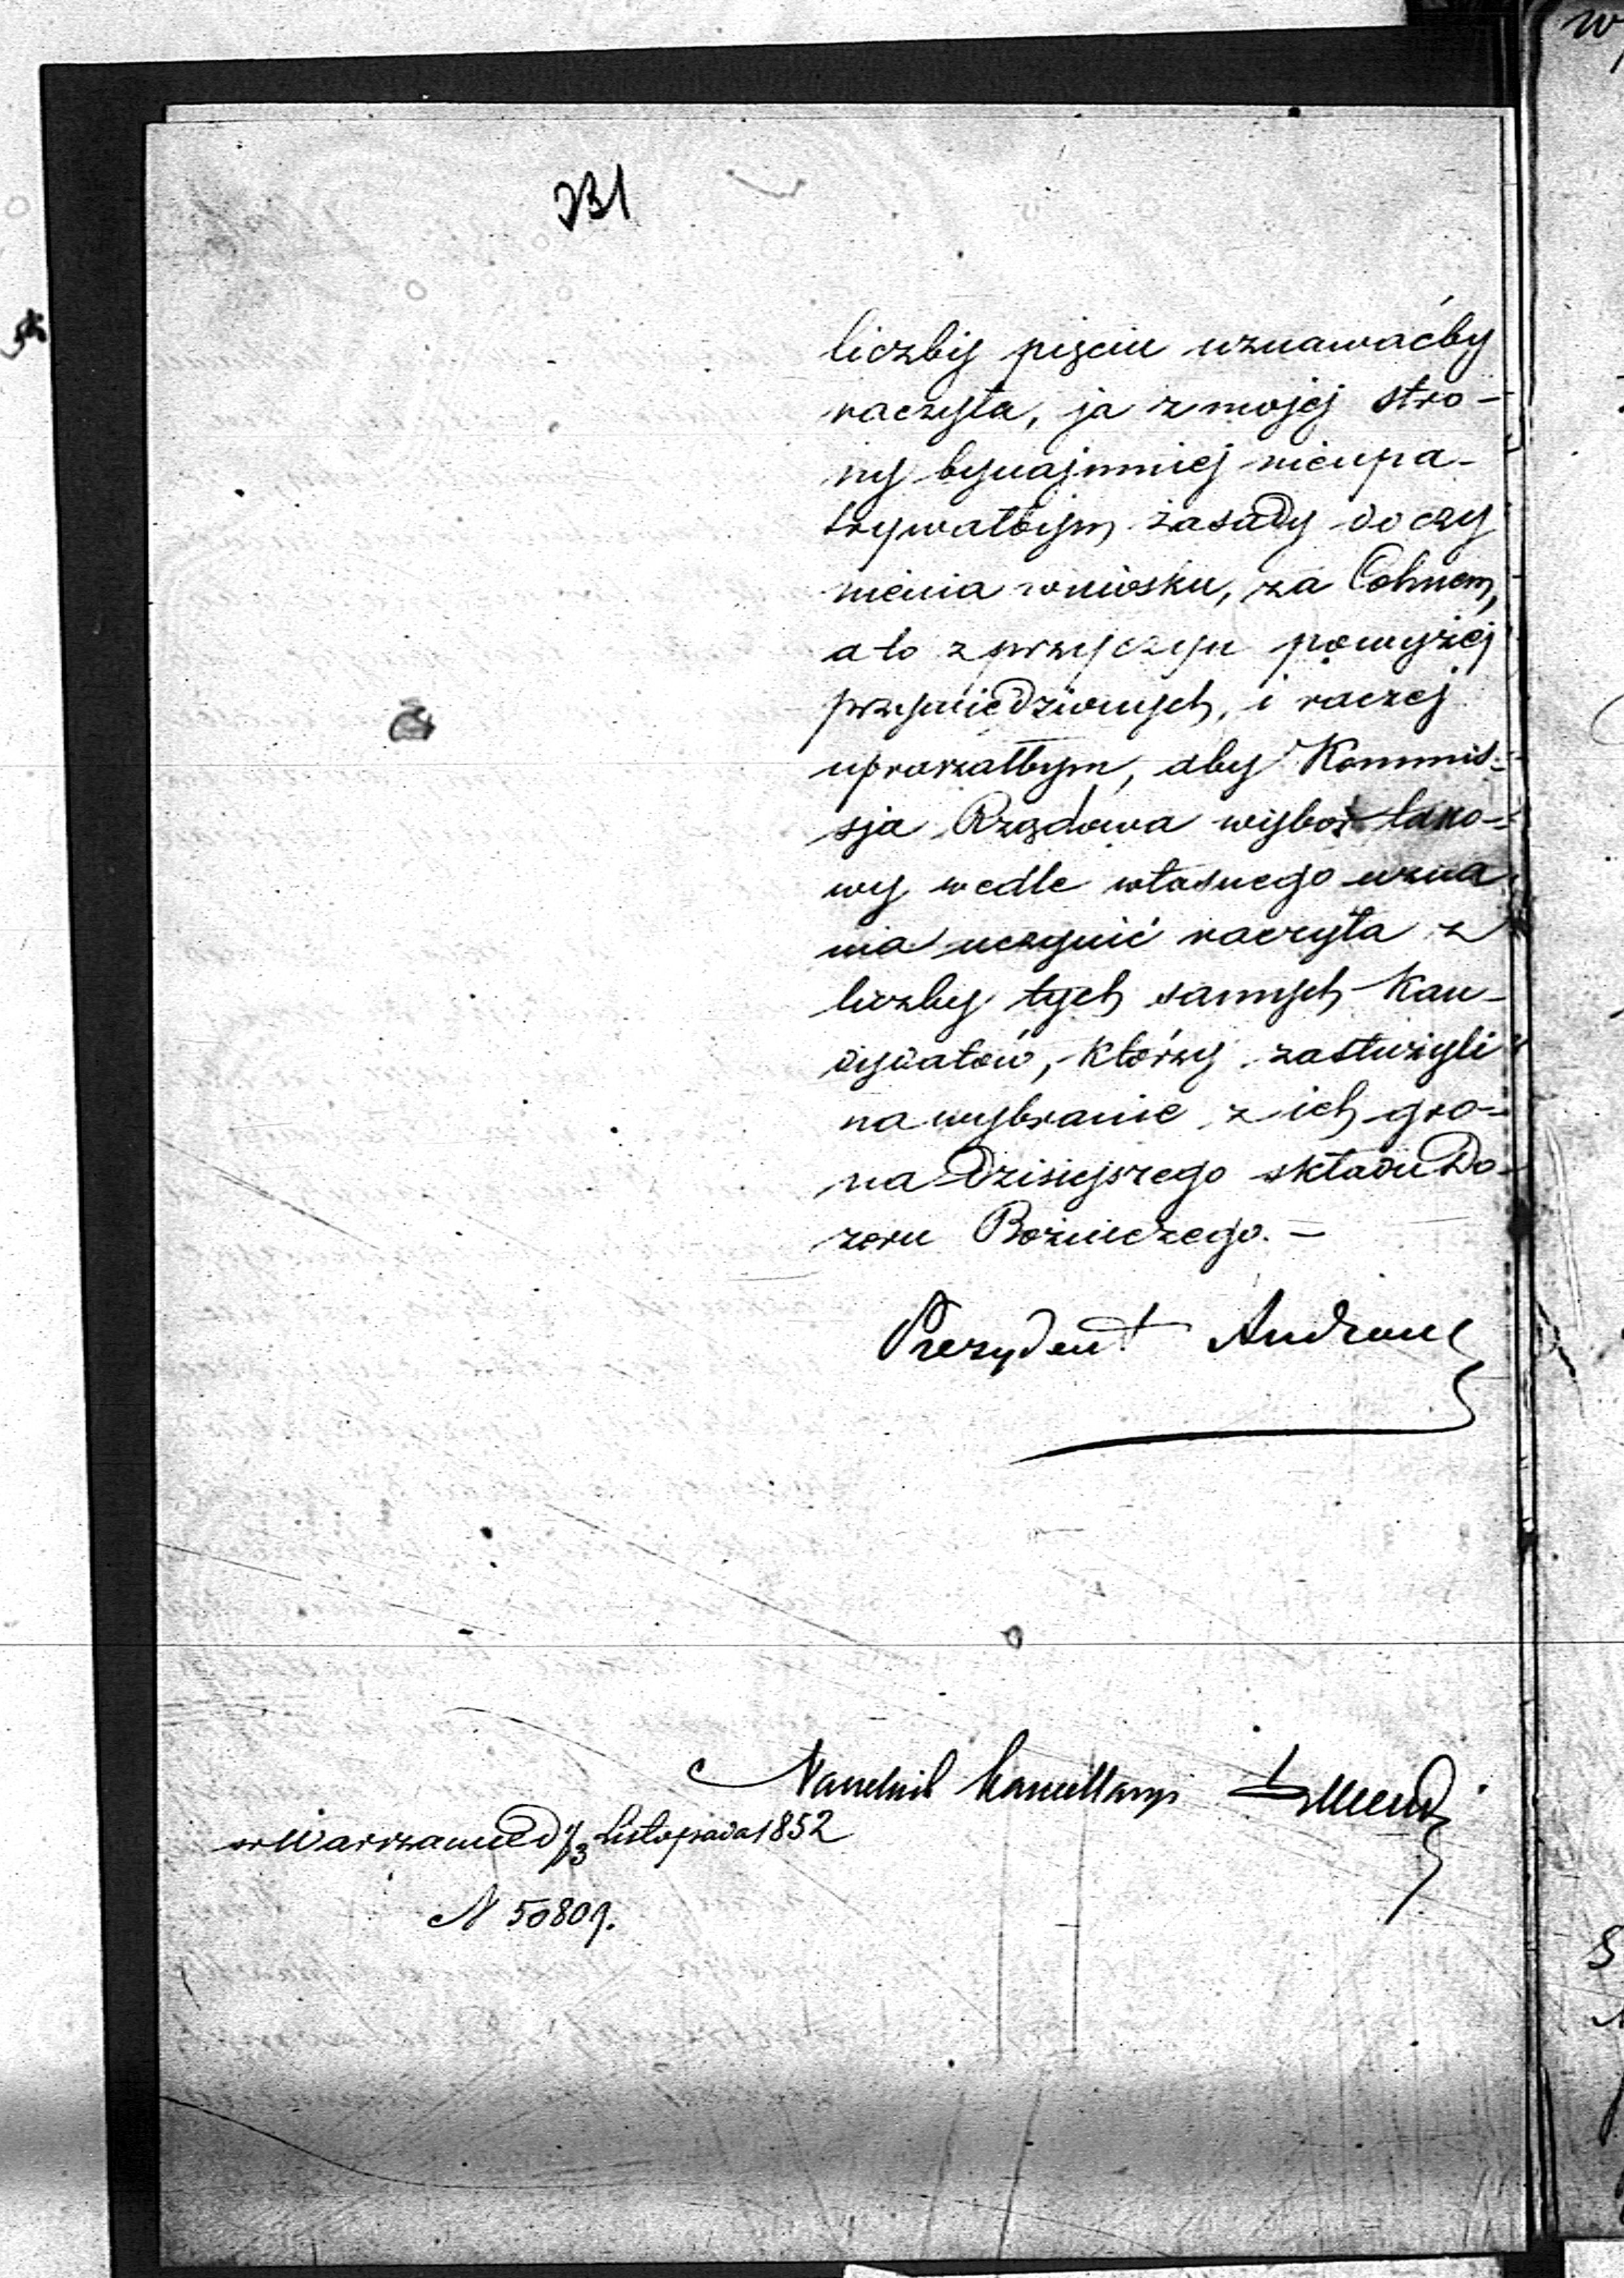 231
liczby pięciu uznawaćby
raczyła, ja z mojej stro-
ny bynajmniej nieupa-
trywałbym zasady do czy
nienia wniosku, za Cohnem,
a to z przyczyn powyżej
przywiedzionych, i raczej
upraszałbym, aby Kommis-
sja Rządowa wybor tako-
wy wedle własnego uzna
nia uczynić raczyła z
liczby tych samych Kan-
dydatów, którzy zasłużyli
na wybranie z ich gro-
na dzisiejszego składu Do-
zoru Bożniczego. –
Prezydent Andrault
Naczelnik Kancellaryi
w Warszawie d 1/13 Listopada 1852
N 50809.